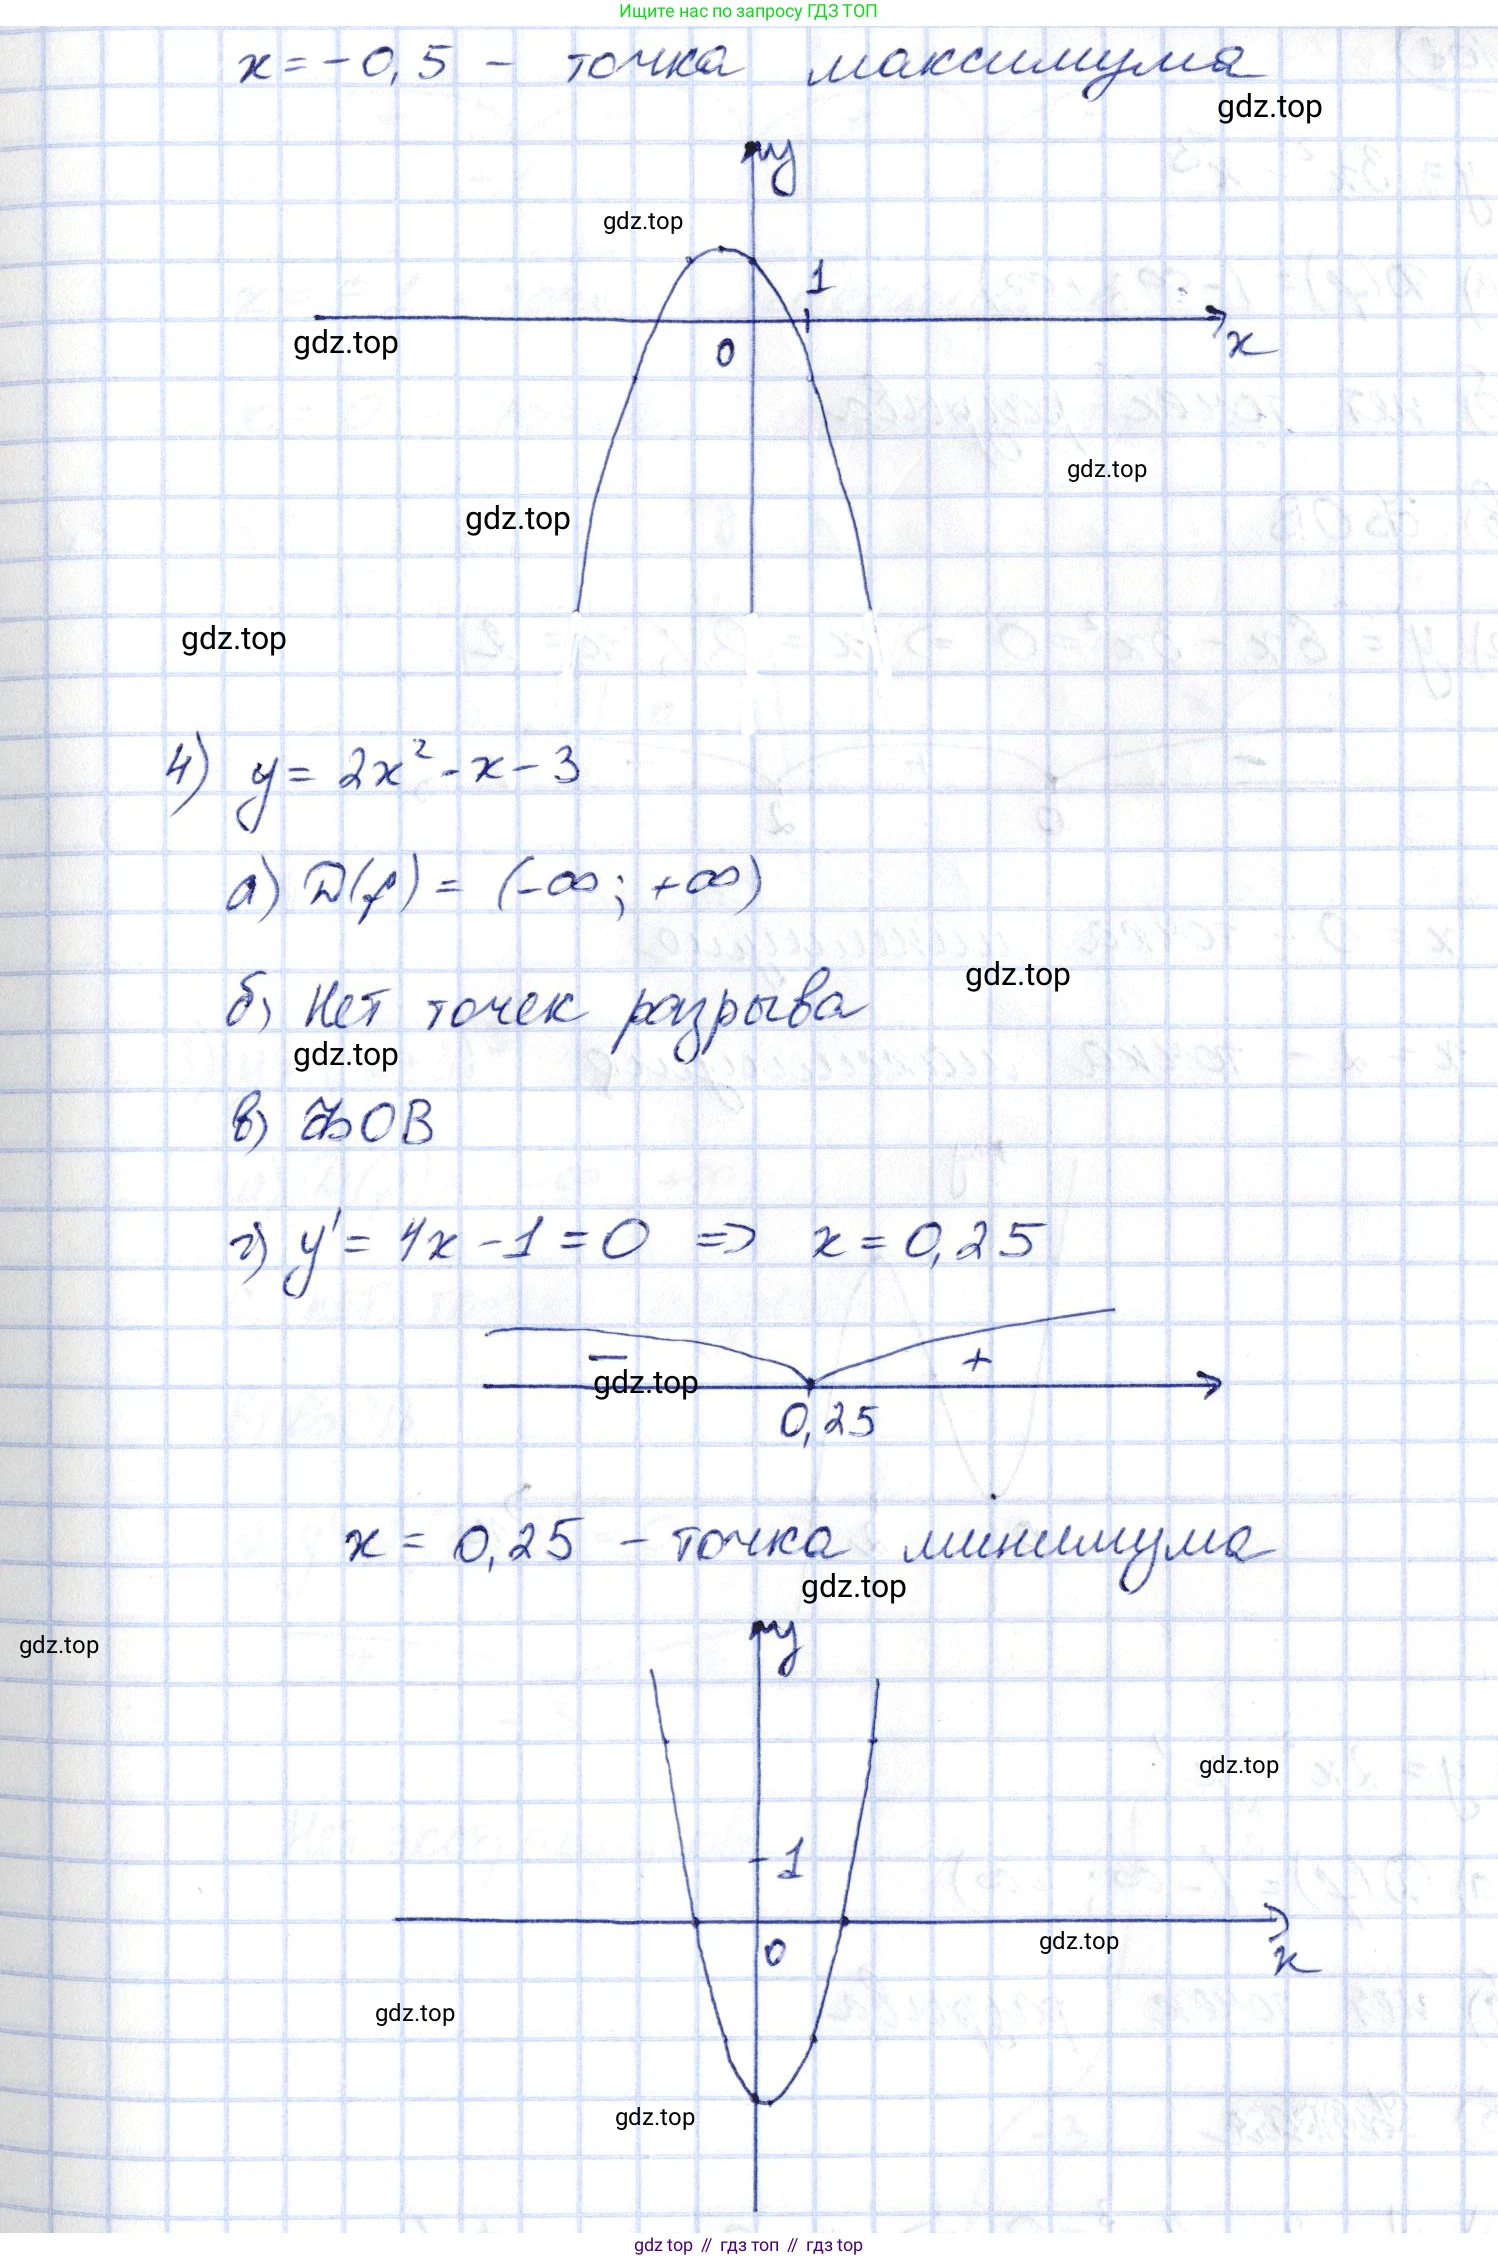 Ищите нас по запросу ГДЗ ТОП
x = -0,5 - точка максимума
gdz.top
y
gdz.top
1
gdz.top
0
x
gdz.top
gdz.top
gdz.top
4) y = 2x² - x - 3
a) D(f) = (-∞; +∞)
gdz.top
б) Нет точек разрыва
gdz.top
в) ФОВ
г) y' = 4x - 1 = 0 => x = 0,25
- +
gdz.top
0,25
x = 0,25 - точка минимума
gdz.top
y
gdz.top
gdz.top
1
0
gdz.top
x
gdz.top
gdz.top
gdz top // гдз топ // гдз top